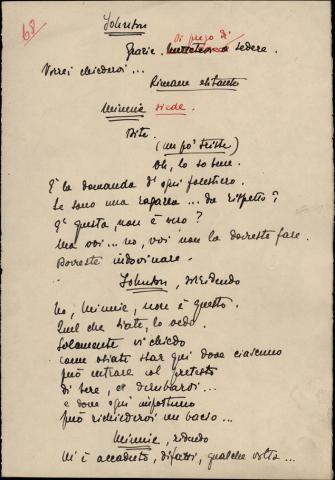 68
Johnson
Vi prego di
Grazie. a sedere.
Vorrei chiedervi...
Rimane esitante
Minnie siede.
Dite.
(un po' triste)
Oh, lo so bene.
È la domanda d'ogni forestiero.
Se sono una ragazza... da rispetto?
È questa, non è vero?
Ma voi... no, voi non la dovreste fare.
Dovreste indovinare.
Johnson, sorridendo
No, Minnie, non è questo.
Quel che siate, lo vedo.
Solamente vi chiedo
come osiate star qui dove ciascuno
può entrare col pretesto
di bere, e derubarvi...
e dove ogni importuno
può richiedervi un bacio...
Minnie, ridendo
M'è accaduto, difatti, qualche volta...